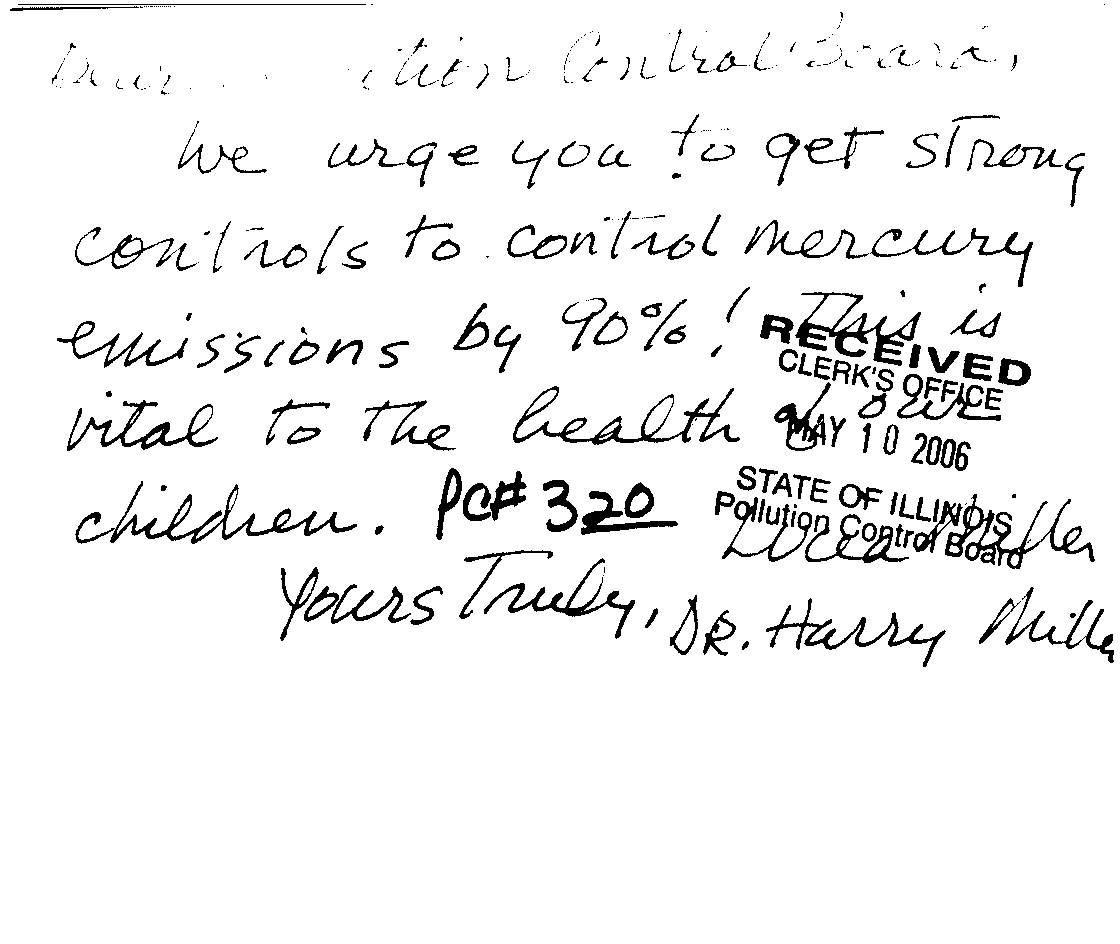 Dear Control Board,
We urge you to get strong
controls to control mercury
emissions by 90%! This is
RECEIVED
CLERK'S OFFICE
vital to the health of our
MAY 10 2006
STATE OF ILLINOIS
Pollution Control Board
children. PC# 320
Miller
Yours Truly, DR. Harry Miller